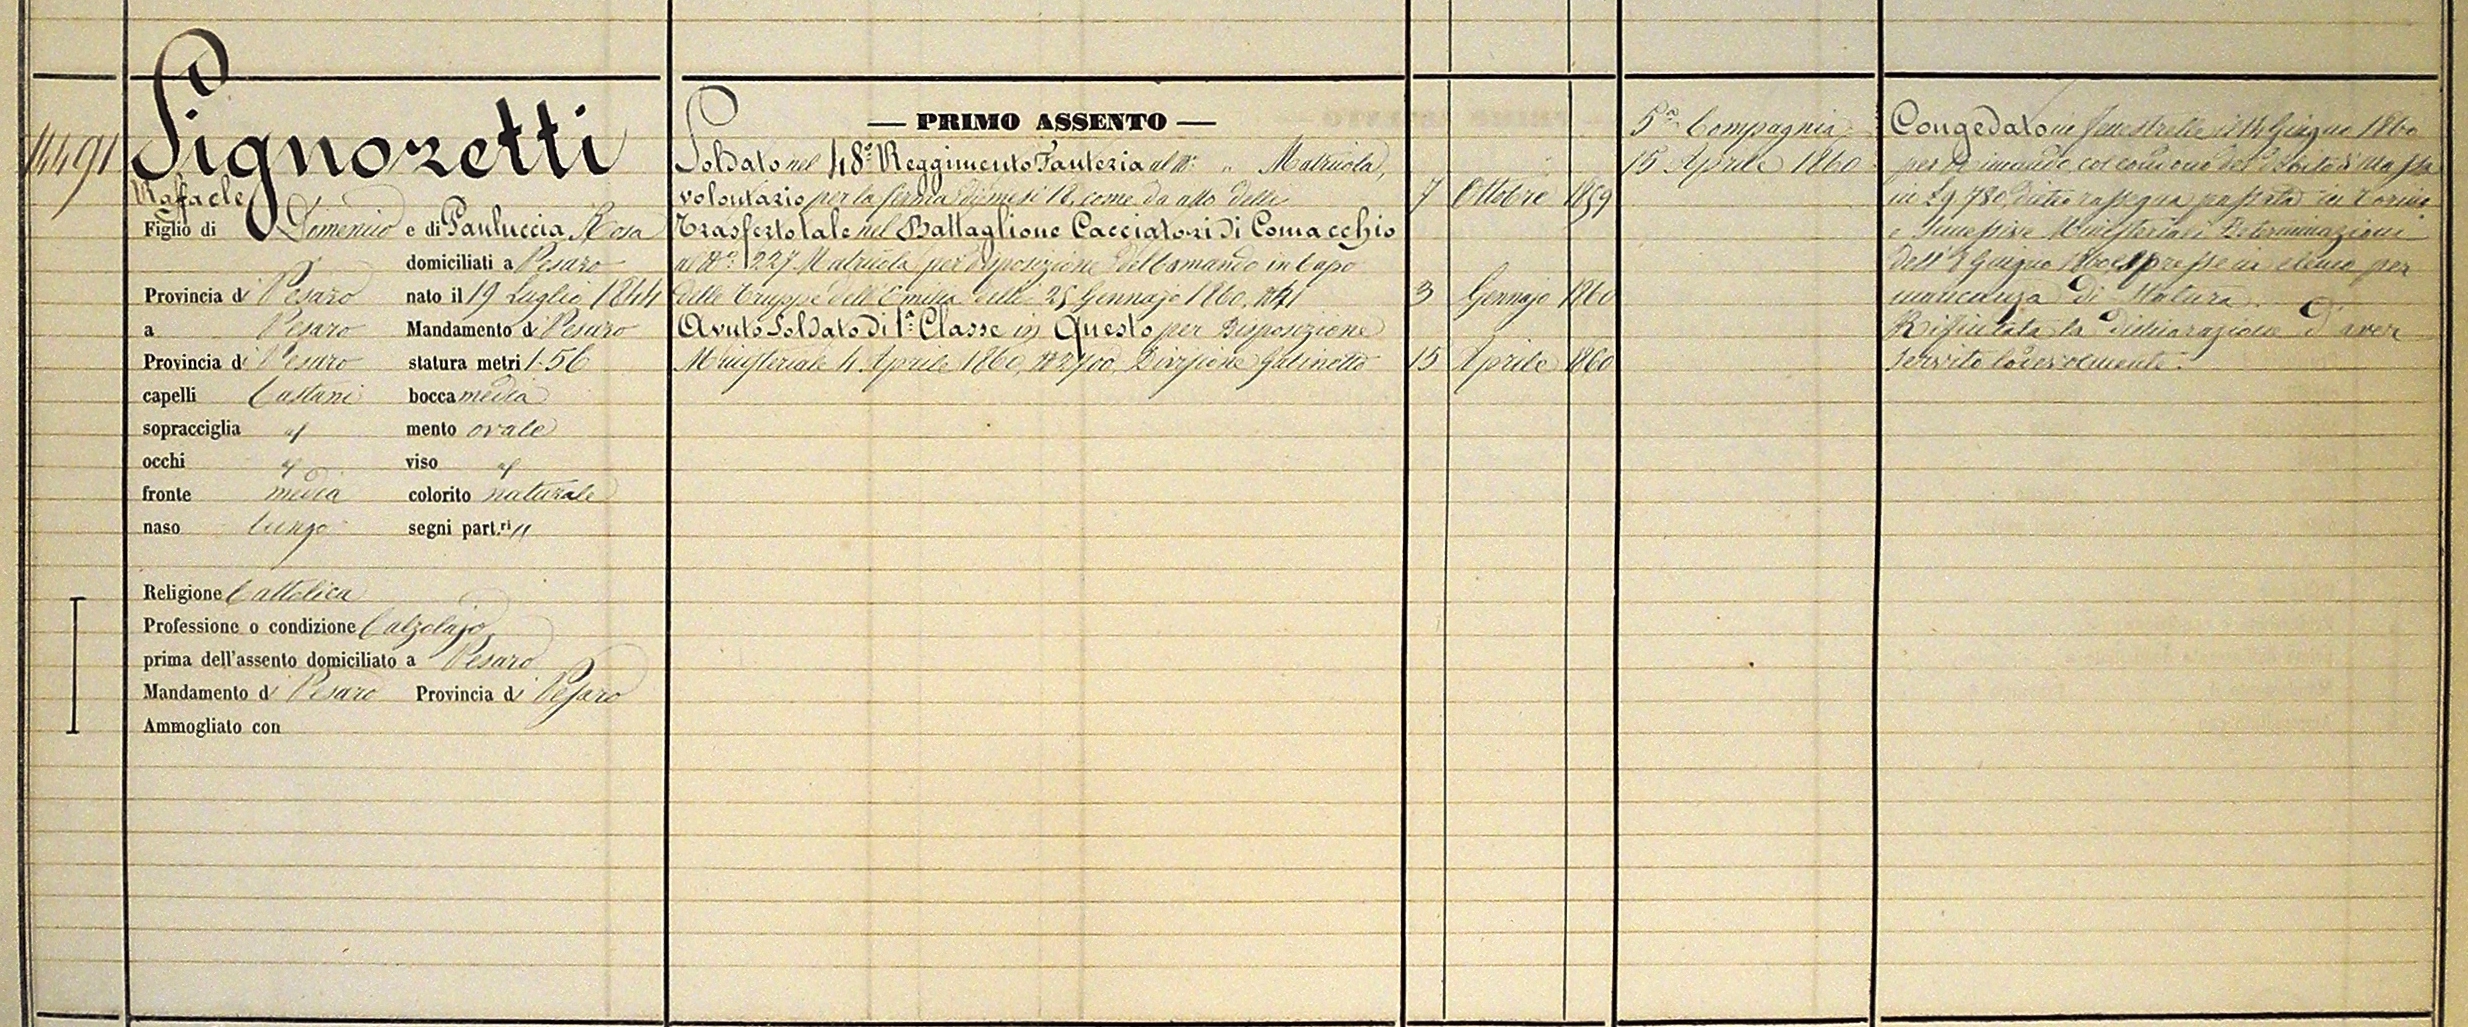 14491
Signoretti
Raffaele
Figlio di Domenico e di Pauluccia Rosa
domiciliati a Pesaro
Provincia di Pesaro nato il 19 Luglio 1844
a Pesaro Mandamento di Pesaro
Provincia di Pesaro statura metri 1.56
capelli Castani bocca media
sopracciglia id mento ovale
occhi id viso id
fronte media colorito naturale
naso lungo segni part.ri //
Religione Cattolica
Professione o condizione Calzolajo
prima dell'assento domiciliato a Pesaro
Mandamento di Pesaro Provincia di Pesaro
Ammogliato con
— PRIMO ASSENTO —
Soldato nel 48° Reggimento Fanteria al N° " Matricola,
volontario per la ferma di mesi 18, come da atto delli 7 Ottobre 1859
Trasferto tale nel Battaglione Cacciatori di Comacchio
al N° 227 Matricola per disposizione del Comando in Capo
delle Truppe dell'Emilia delli 25 Gennajo 1860, N° 41 3 Gennajo 1860
Avuto Soldato di 1ª Classe in Questo per Disposizione
Ministeriale 4 Aprile 1860, N° 2700, Divisione Gabinetto 15 Aprile 1860
5ª Compagnia
15 Aprile 1860
Congedato in Fenestrelle il 14 Giugno 1860
per rimando col condono del debito di massa
in L 9.780 dietro rassegna passata in Torino
e Ministeriali Determinazioni
dell' 8 Giugno 1860 espresse in elenco per
mancanza di Statura.
Rifiutata la dichiarazione d'aver
servito lodevolmente.